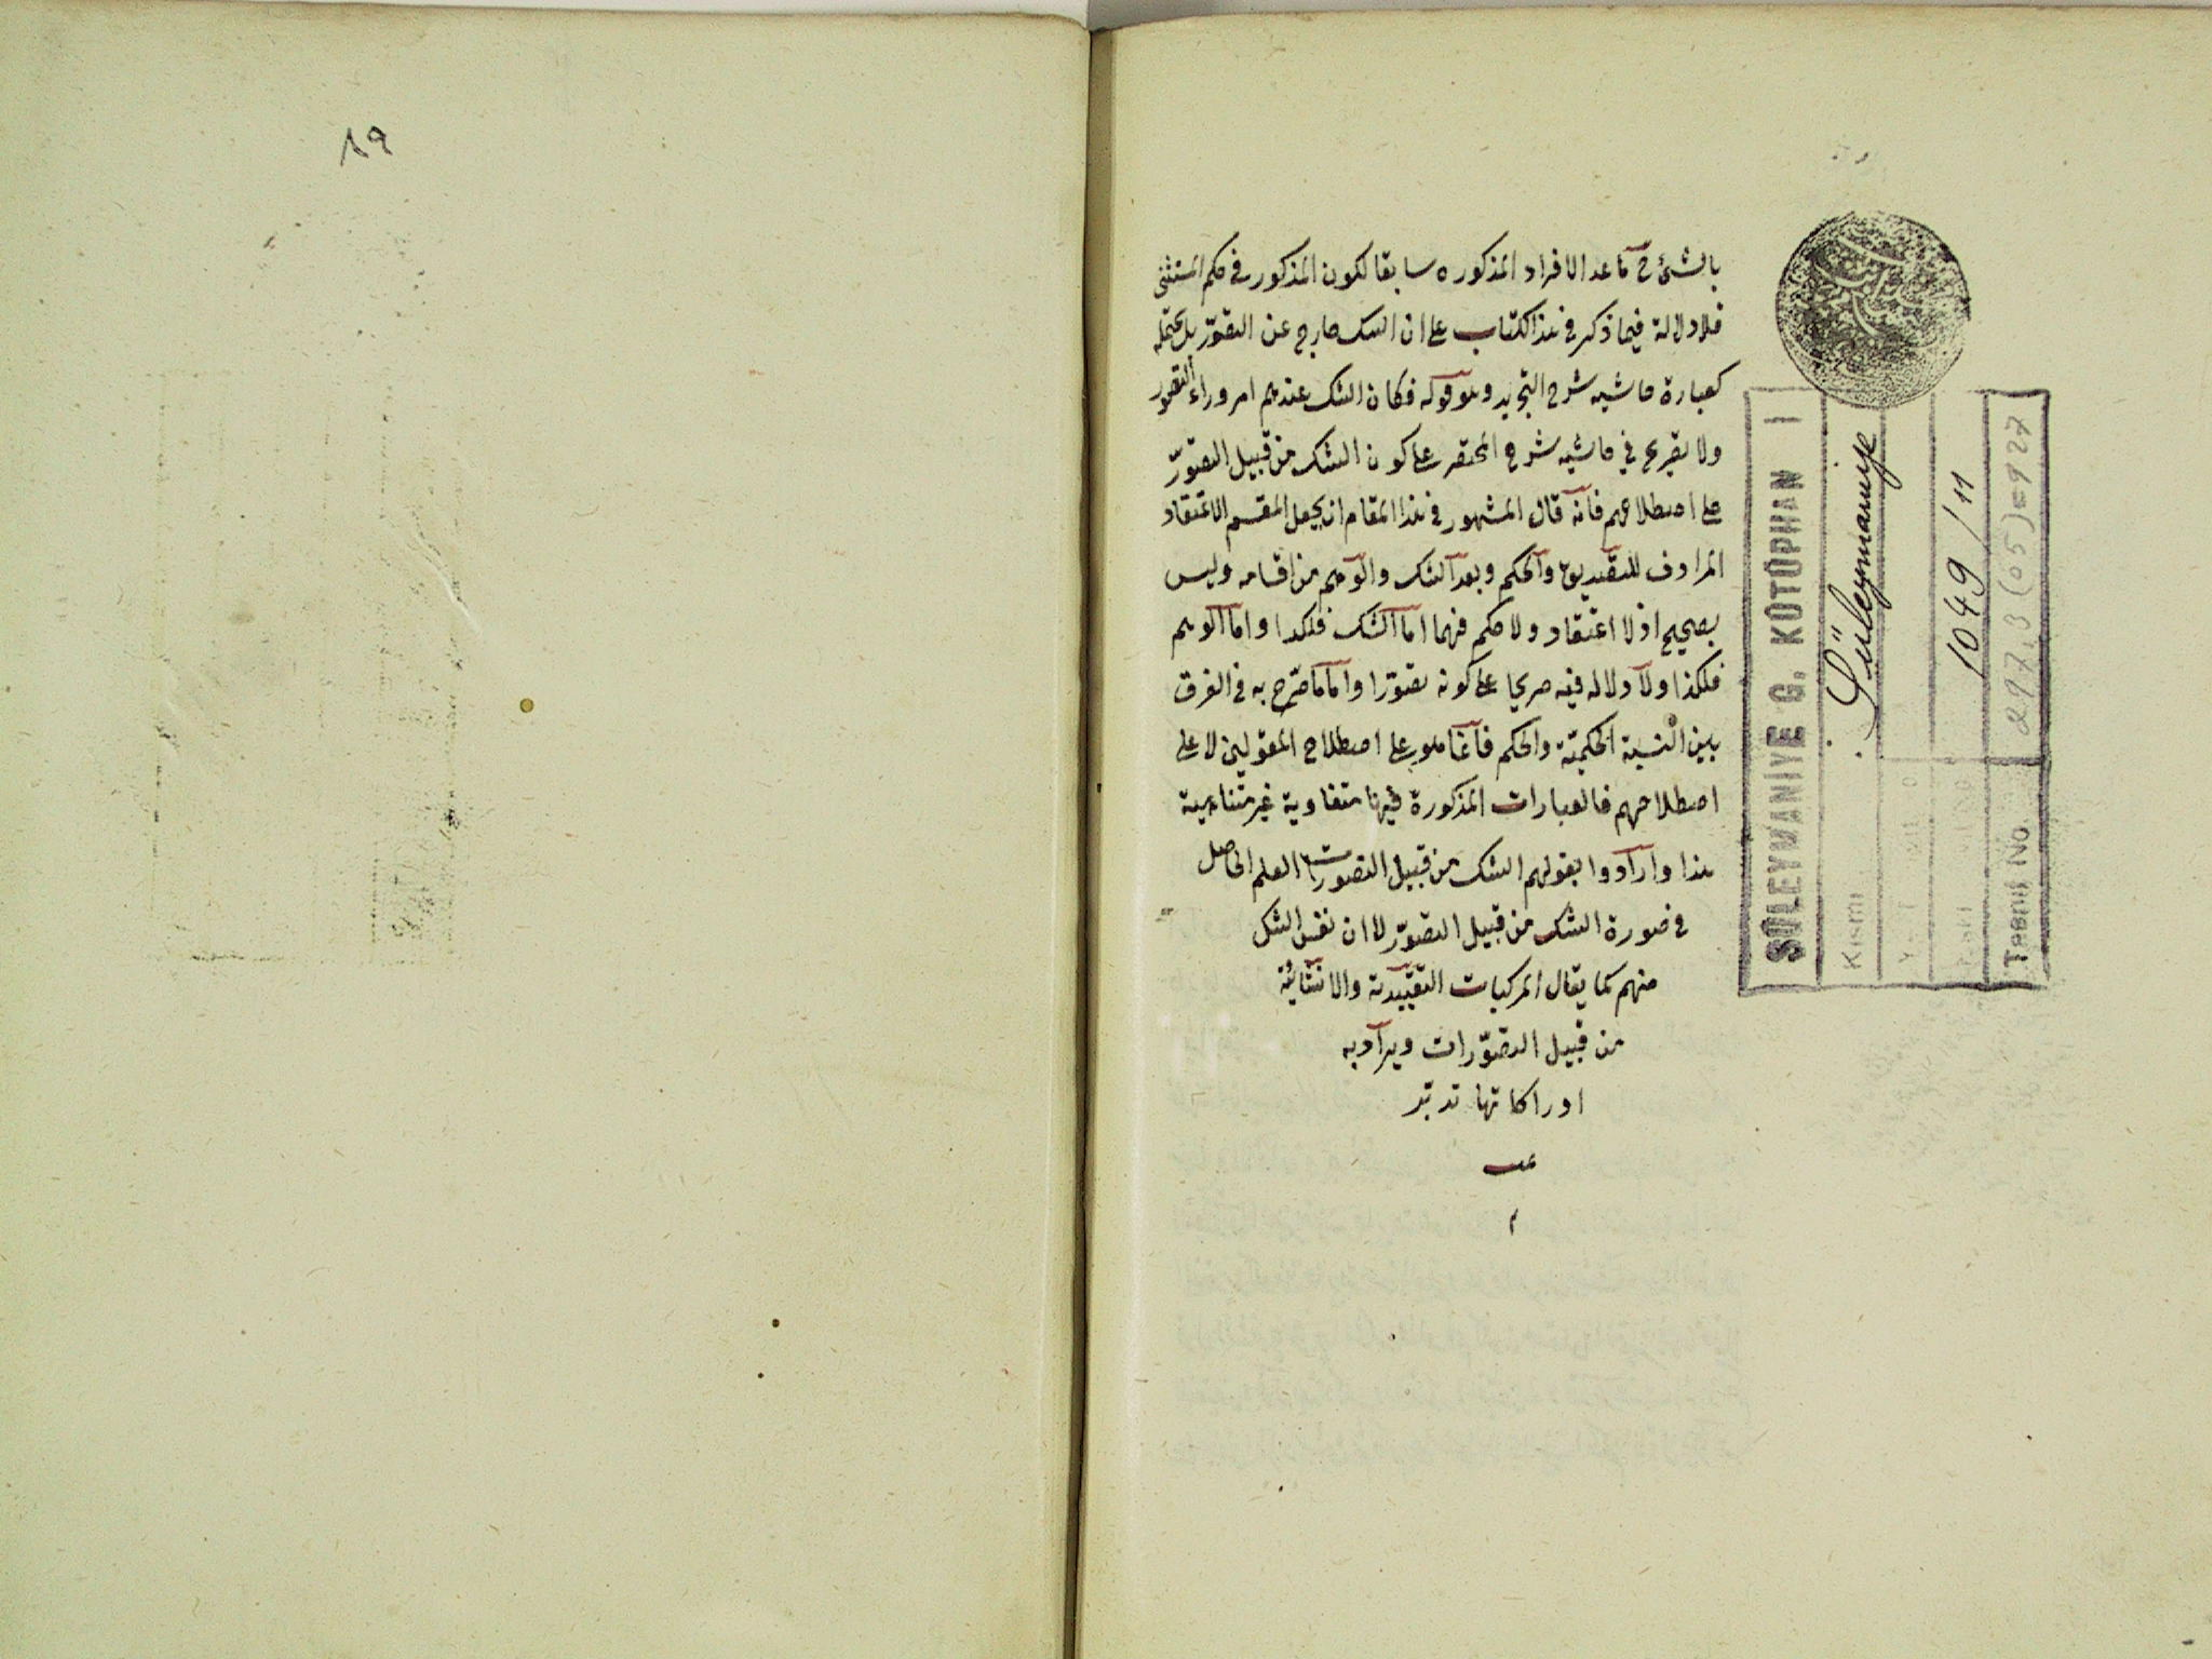 ٨٩
بالشئ في ما عدا الافراد المذكوره سابقا لكون المذكور في حكم المستثنى
فلا دلالة فيما ذكر في هذا الكتاب على ان الشك خارج عن التصوّر بل يحتمله
كعبارة حاشيه شرح التجريد وهو قوله فكان الشك عندهم امر وراء التصور
ولا تصريح في حاشيه شرح المختصر على كون الشك من قبيل التصوّر
على اصطلاحهم فانه قال المشهور في هذا المقام ان يجعل المقسم الاعتقاد
المرادف للتصديق والحكم وبعد الشك والوهم من اقسامه وليس
بصحيح اذ لا اعتقاد ولا حكم فيهما اما الشك فلكذا واما الوهم
فلكذا ولا دلاله فيه صريحا على كونه تصوّرا واما ما صرّح به في الفرق
بين النسبة الحكميّة والحكم فانما هو على اصطلاح المعقوليين لا على
اصطلاحهم فالعبارات المذكورة فيها متفاوية غير متناهية
هذا وارادوا بقولهم الشك من قبيل التصورات العلم الحاصل
في صورة الشك من قبيل التصوّر لا ان نفس الشك
منهم كما يقال المركبات التقييديّة والانشائيّة
من قبيل التصوّرات ويراد به
ادراكاتها تدبّر
م
SÜLEYMANİYE G. KÜTÜPHAN I
Kısmı Süleymaniye
1049/11
Tasnif No. 297.3(05)=927